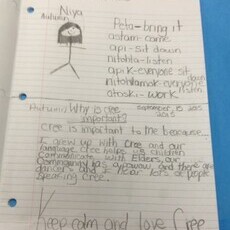 Niya
Autumn
Peta-bring it
astam-come
api-sit down
nitohta-listen
apik-everyone sit down
nitohtamok-everyone listen
atoski-work
Autumn Why is cree
important?
September, 15 2015
2015
Cree is important to me because...
I grew up with cree and our
language. Cree helps us children
communicate with Elders, our
Community has a powwow, and there are
dancers and I hear lots of people
speaking Cree.
Keep calm and love Cree